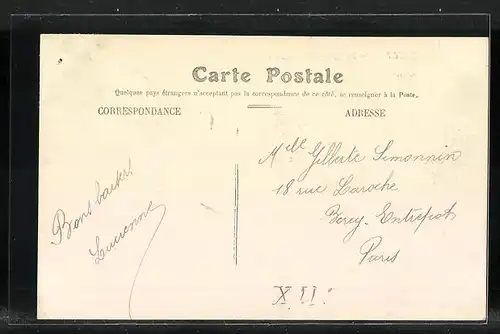 Carte Postale
Quelques pays étrangers n'acceptant pas la correspondance de ce côté, se renseigner à la Poste.
CORRESPONDANCE
ADRESSE
Bons baisers
Lucienne
Melle Gilberte Simonnin
18 rue Laroche
Bercy-Entrepôt
Paris
XII: